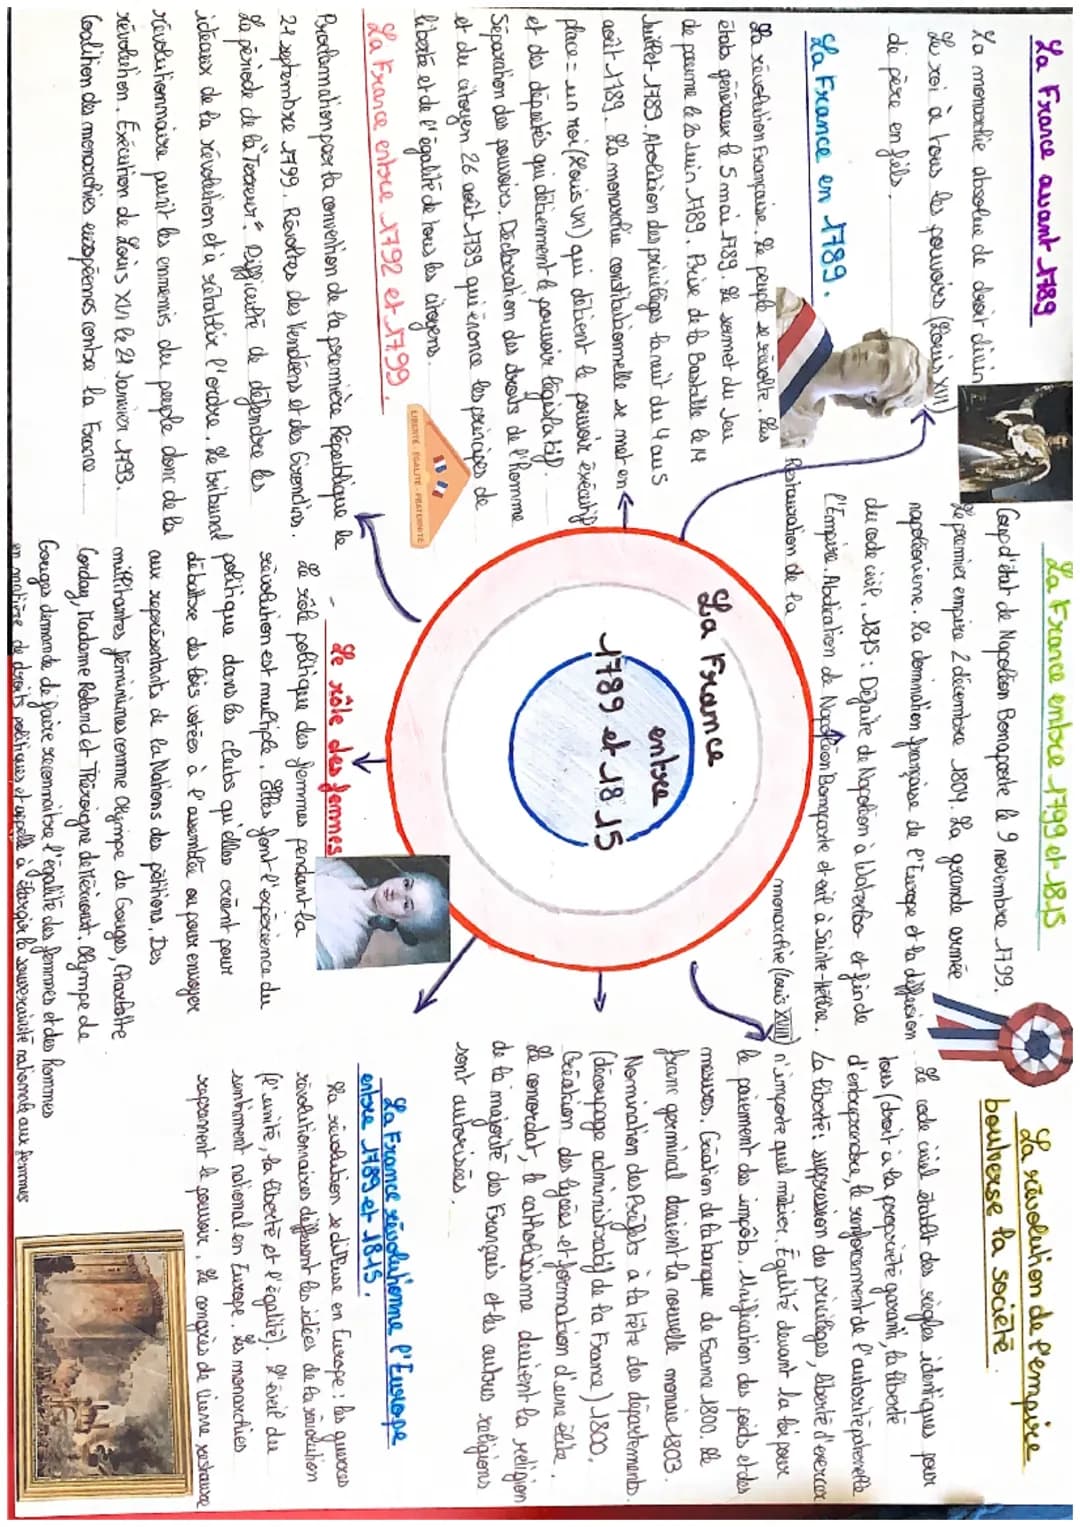 La France avant 1789
La monarchie absolue de droit divin
Le roi à tous les pouvoirs (Louis XVI)
de père en fils.
La France en 1789.
La révolution Française. Le peuple se révolte. Les
états généraux le 5 mai 1789. Le serment du Jeu
de paume le 20 Juin 1789. Prise de la Bastille le 14
Juillet 1789. Abolition des privilèges la nuit du 4 au 5
août 1789. La monarchie constitutionnelle se met en
place = un roi (Louis XVI) qui détient le pouvoir exécutif
et des députés qui détiennent le pouvoir législatif.
Séparation des pouvoirs. Déclaration des droits de l'homme
et du citoyen 26 août 1789 qui énonce les principes de
liberté et de l'égalité de tous les citoyens.
LIBERTÉ · ÉGALITÉ · FRATERNITÉ
La France entre 1792 et 1799
Proclamation par la convention de la première République le
21 septembre 1799. Révoltes des Vendéens et des Girondins.
La période de la "Terreur". Difficulté de défendre les
idéaux de la révolution et à rétablir l'ordre. Le tribunal
révolutionnaire punit les ennemis du peuple donc de la
révolution. Exécution de Louis XVI le 21 Janvier 1793.
Coalition des monarchies européennes contre la France
La France entre 1799 et 1815
Coup d'état de Napoléon Bonaparte le 9 novembre 1799.
Le premier empire 2 décembre 1804. La grande armée
napoléonienne. La domination française de l'Europe et la diffusion
du code civil. 1815 : Défaite de Napoléon à Waterloo et fin de
l'Empire. Abdication de Napoléon Bonaparte et exil à Sainte-Hélène.
Restauration de la
monarchie (Louis XVIII)
La France
entre
1789 et 1815
Le rôle des femmes
Le rôle politique des femmes pendant la
révolution est multiple. Elles font l'expérience du
politique dans les clubs qu'elles créent pour
débattre des lois votées à l'assemblée ou pour envoyer
aux représentants de la Nations des pétitions. Des
militantes féminines comme Olympe de Gouges, Charlotte
Corday, Madame Roland et Théroigne de Méricourt. Olympe de
Gouges demande de faire reconnaitre l'égalité des femmes et des hommes
en matière de droits politiques et appelle à élargir la souveraineté nationale aux femmes
La révolution de l'empire
bouleverse la société.
Le code civil établit des règles identiques pour
tous (droit à la propriété garanti, la liberté
d'entreprendre, le renforcement de l'autorité paternelle
La liberté : suppression des privilèges, liberté d'exercer
n'importe quel métier. Égalité devant la loi pour
le paiement des impôts. Unification des poids et des
mesures. Création de la banque de France 1800. Le
franc germinal devient la nouvelle monnaie 1803.
Nomination des Préfets à la tête des départements.
(découpage administratif de la France) 1800.
Création des lycées et formation d'une élite.
Le concordat, le catholicisme devient la religion
de la majorité des Français et les autres religions
sont autorisées.
La France révolutionne l'Europe
entre 1789 et 1815.
La révolution se diffuse en Europe : les guerres
révolutionnaires diffusent les idées de la révolution
(l'unité, la liberté et l'égalité). L'éveil du
sentiment national en Europe. Les monarchies
reprennent le pouvoir. Le congrès de Vienne restaure